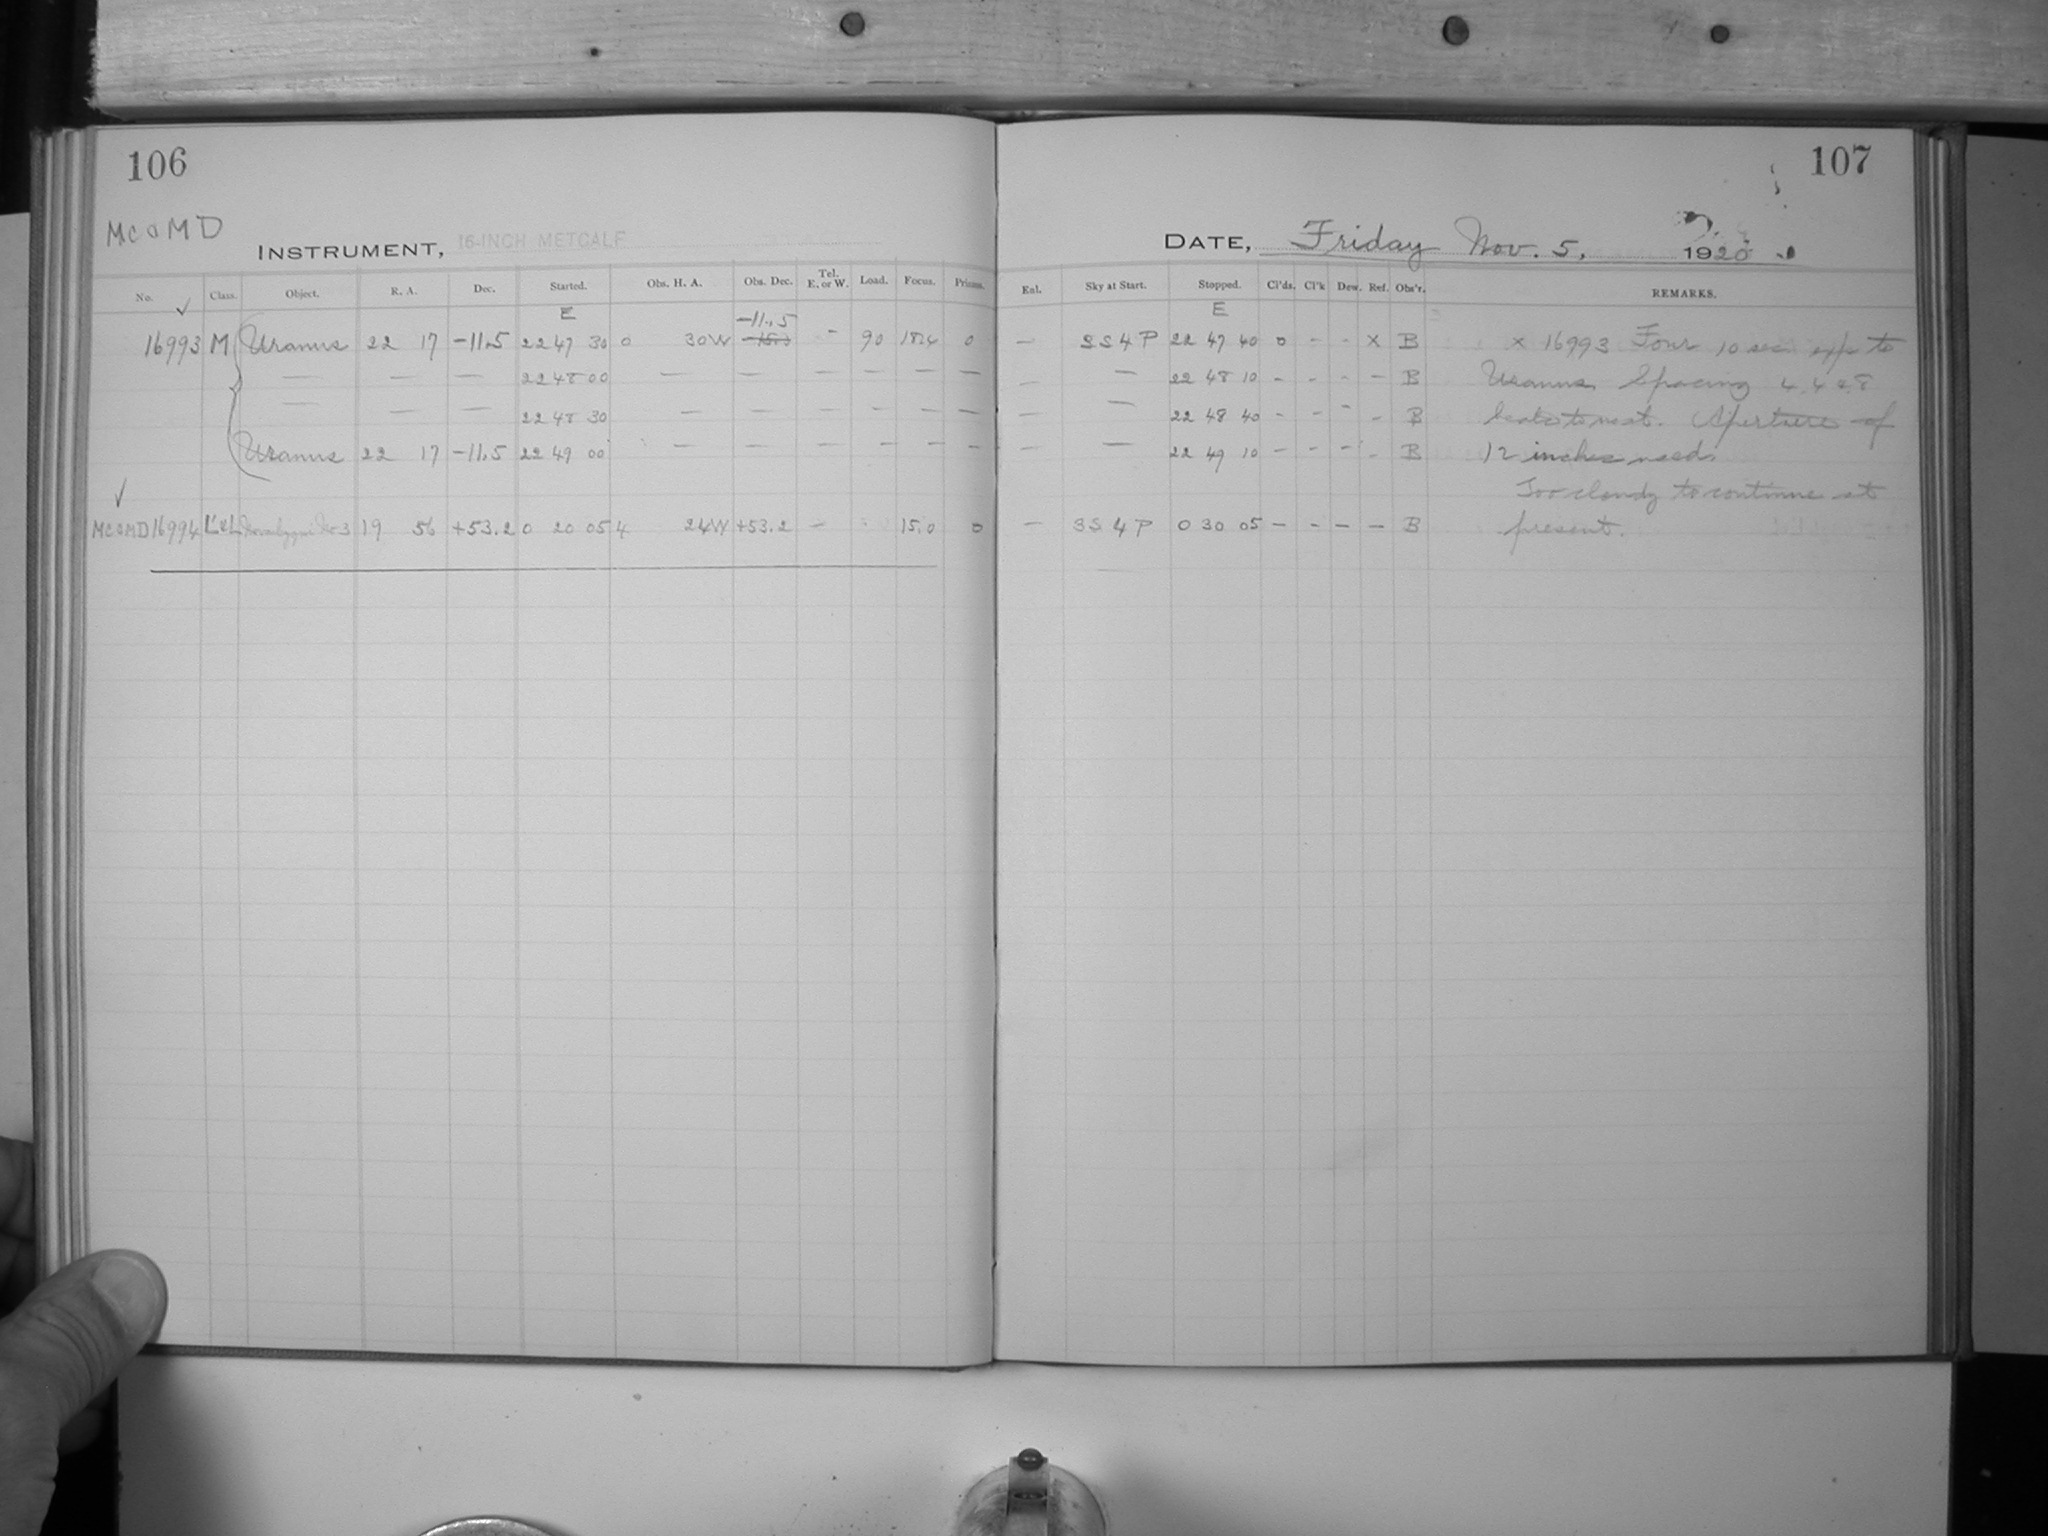 106
107
Mc a M D
INSTRUMENT, 16-INCH METCALF
DATE, Friday Nov. 5, 1920
No. Class. Object. R. A. Dec. Started. Obs. H. A. Obs. Dec. Tel. E. or W. Load. Focus. Prisms. Enl. Sky at Start. Stopped. Cl'ds. Cl'k Dew. Ref. Obs'r. REMARKS.
E E
-11.5
16993 M Uranus 22 17 -11.5 22 47 30 0 30W - 90 0 - S S 4 P 22 47 40 0 - - x B x 16993 Four 10 sec exp to
— — — 22 48 00 — — — — — — — — 22 48 10 - - - - B Uranus Spacing 4, 4 & 8
— — — 22 48 30 — — — — — — — — 22 48 40 - - - - B Aperture of
Uranus 22 17 -11.5 22 49 00 — — — — — — — — 22 49 10 - - - - B 12 inches used.
Too cloudy to continue at
MC a MD 16994 No 3 19 56 +53.2 0 20 05 4 24W +53.2 - 15.0 0 - S S 4 P 0 30 05 - - - - B present.